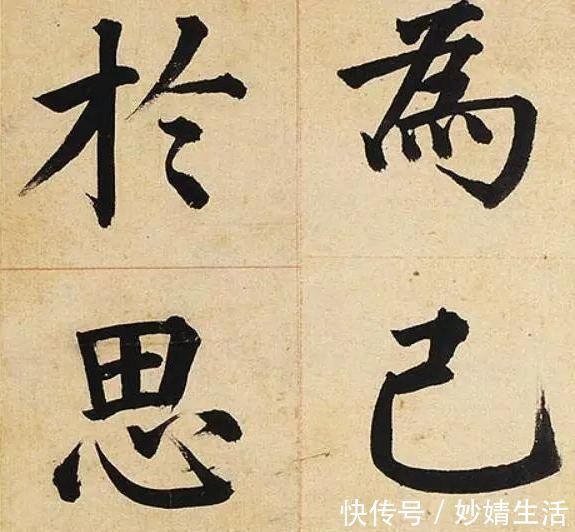 為己
於思
快传号/妙婧生活